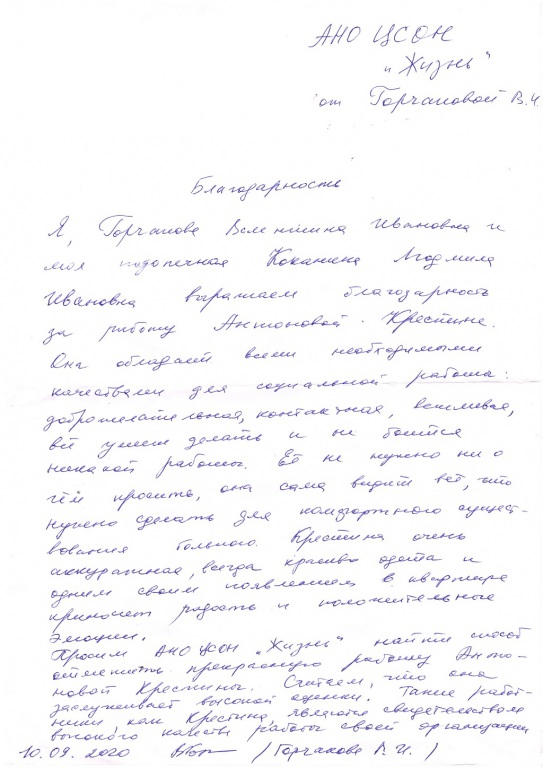 АНО ЦСОН
„Жизнь"
от Горчаковой В.И.
Благодарность
Я, Горчакова Валентина Ивановна и
моя подопечная Людмила
Ивановна выражаем благодарность
за работу Антоновой Кристине.
Она обладает всеми необходимыми
качествами для социальной работы:
доброжелательная, контактная, вежливая,
всё умеет делать и не боится
никакой работы. Её не нужно ни о
чём просить, она сама видит всё, что
нужно сделать для комфортного сущест-
вования больного. Кристина очень
аккуратная, всегда красиво одета и
одним своим появлением в квартире
приносит радость и положительные
эмоции.
Просим АНО ЦСОН „Жизнь" найти способ
отметить прекрасную работу Анто-
новой Кристины. Считаем, что она
заслуживает высокой оценки. Такие работ-
ники, как Кристина, являются свидетельством
высокого качества работы своей организации
10.09.2020 (Горчакова В.И.)